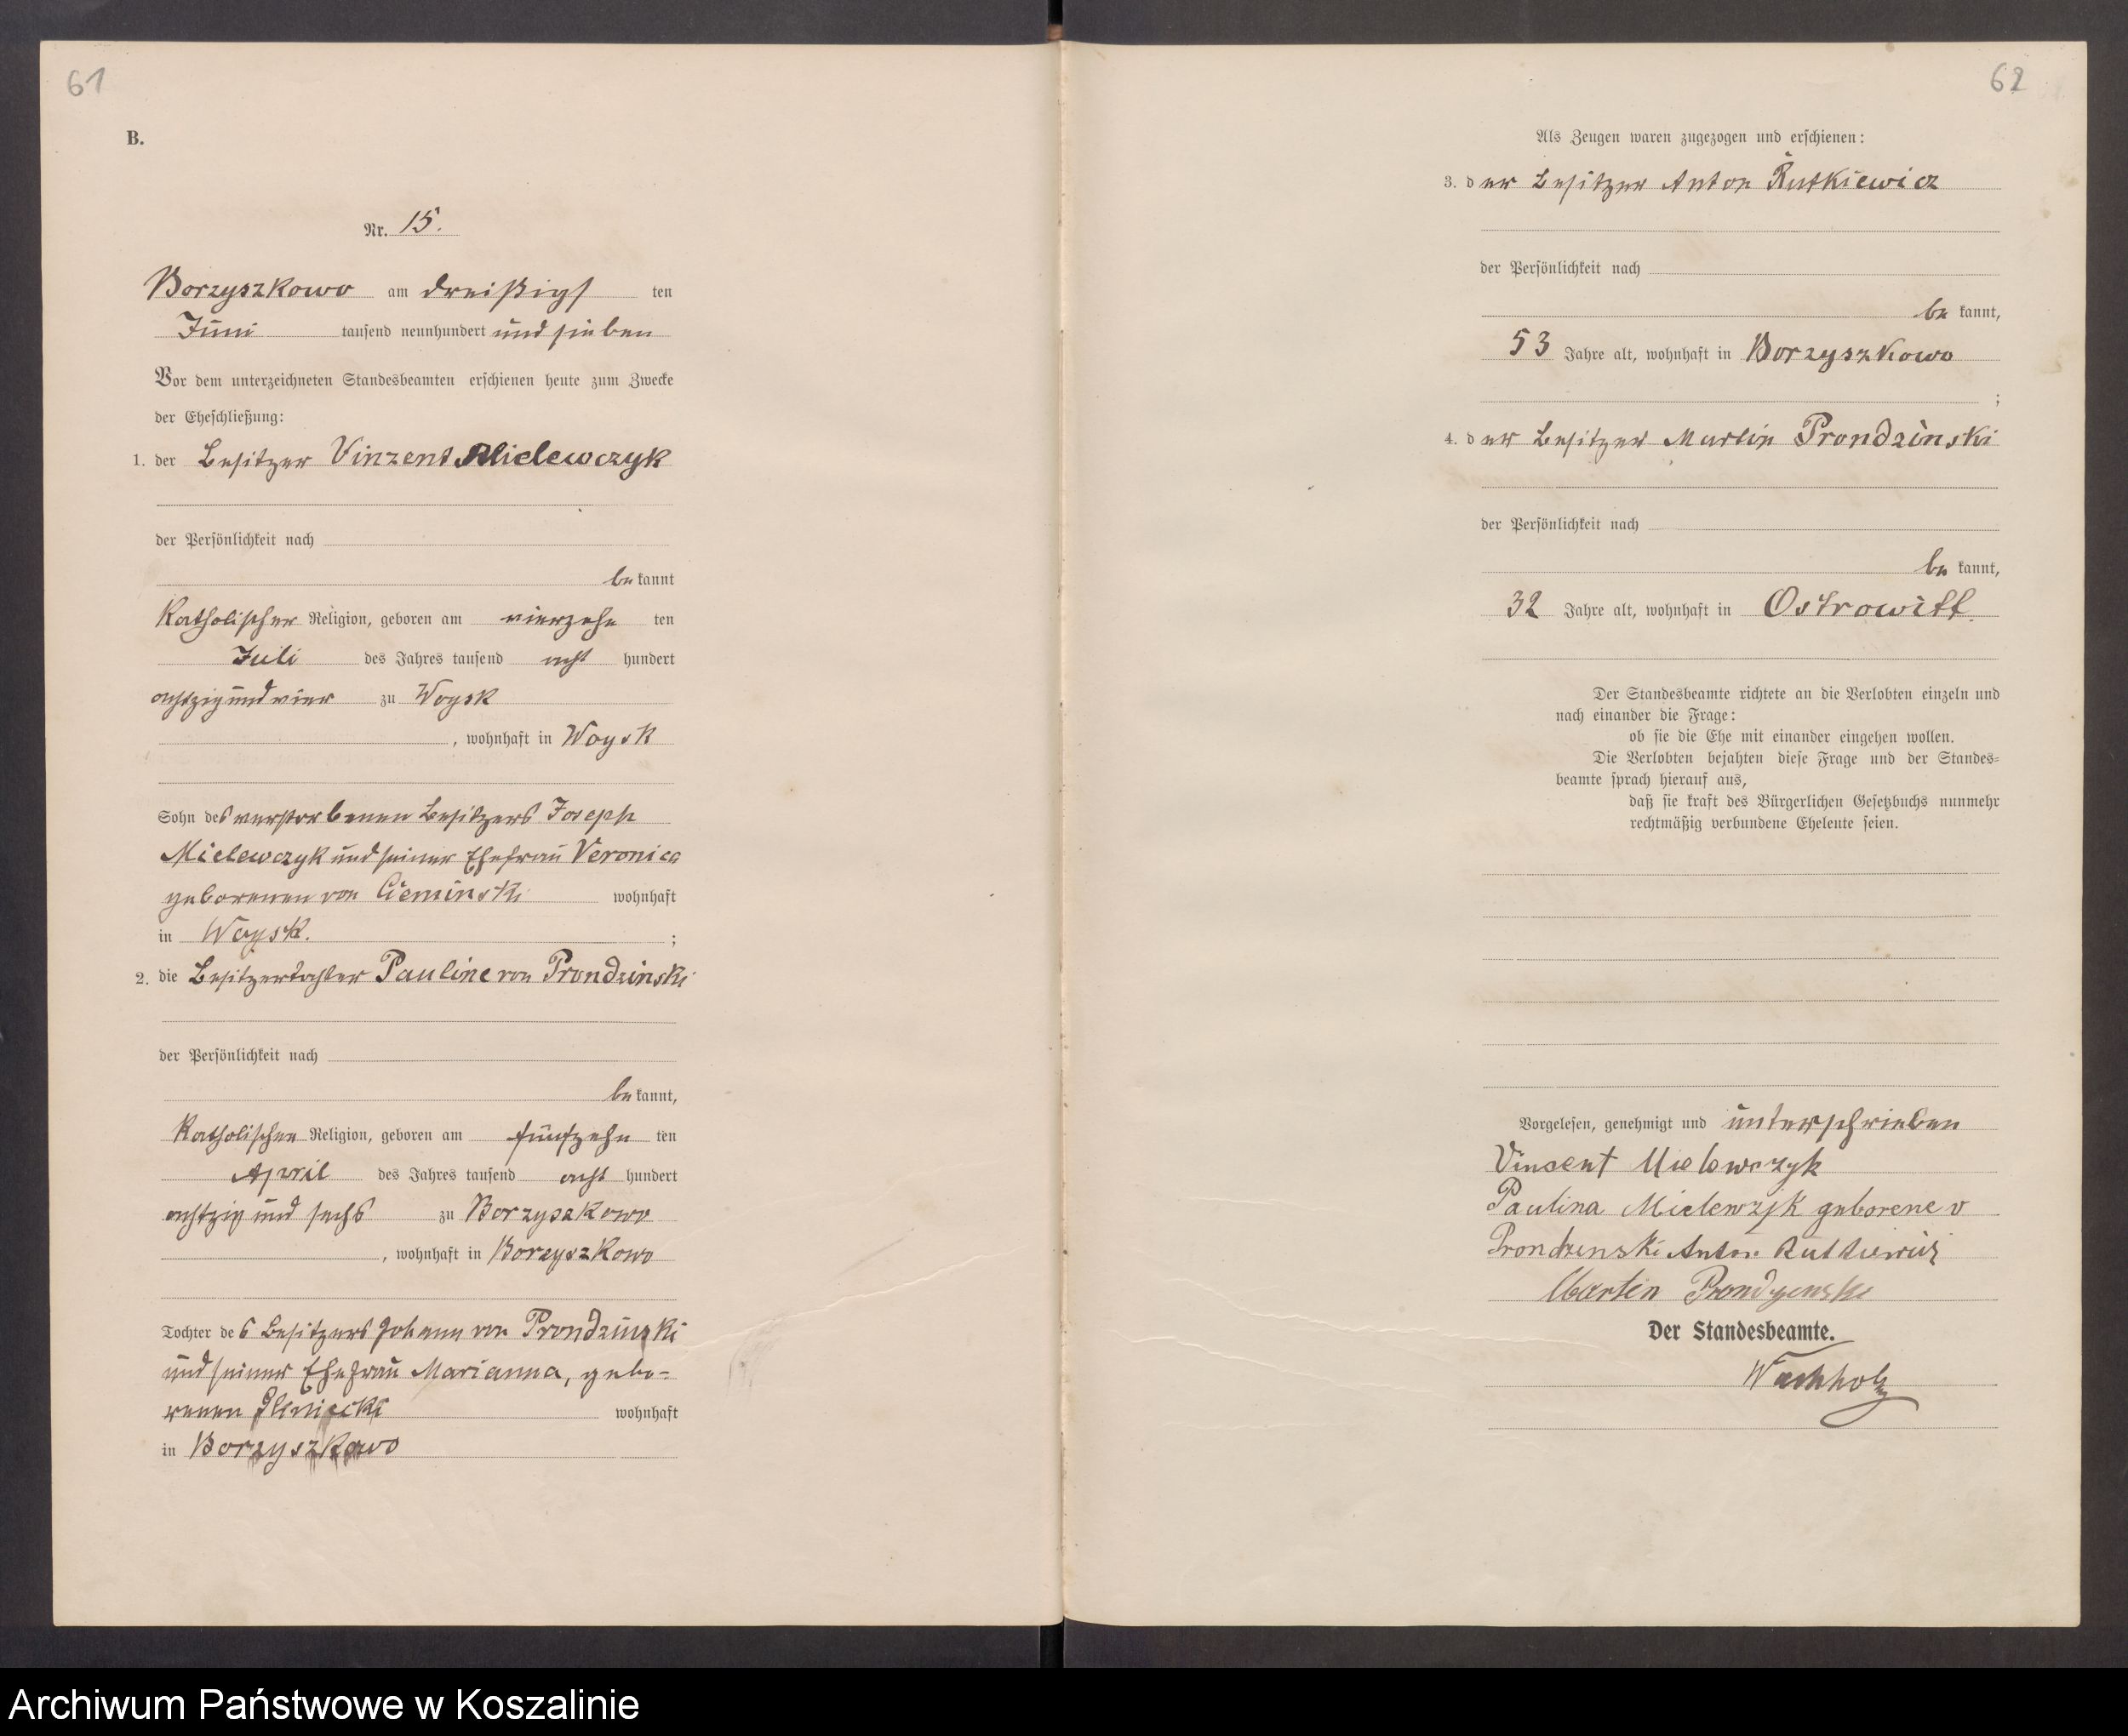 61
B.
Nr. 15.
Borzyszkowo am dreißigsten
Juni tausend neunhundert und sieben
Vor dem unterzeichneten Standesbeamten erschienen heute zum Zwecke
der Eheschließung:
1. der Besitzer Vinzent Mielewczyk
der Persönlichkeit nach
bekannt
Katholischer Religion, geboren am vierzehnten
Juli des Jahres tausend acht hundert
achtzig und vier zu Woysk
, wohnhaft in Woysk
Sohn des verstorbenen Besitzers Joseph
Mielewczyk und seiner Ehefrau Veronica
geborenen von Cieminski wohnhaft
in Woysk. ;
2. die Besitzertochter Pauline von Prondzinski
der Persönlichkeit nach
bekannt,
Katholischen Religion, geboren am fünfzehnten
April des Jahres tausend acht hundert
achtzig und sechs zu Borzyszkowo
, wohnhaft in Borzyszkowo
Tochter des Besitzers Johann von Prondzinski
und seiner Ehefrau Marianna, gebo-
renen wohnhaft
in Borzyszkowo
62
Als Zeugen waren zugezogen und erschienen:
3. der Besitzer Anton Rutkiewicz
der Persönlichkeit nach
bekannt,
53 Jahre alt, wohnhaft in Borzyszkowo
;
4. der Besitzer Martin Prondzinski
der Persönlichkeit nach
bekannt,
32 Jahre alt, wohnhaft in Ostrowitt
Der Standesbeamte richtete an die Verlobten einzeln und
nach einander die Frage:
ob sie die Ehe mit einander eingehen wollen.
Die Verlobten bejahten diese Frage und der Standes=
beamte sprach hierauf aus,
daß sie kraft des Bürgerlichen Gesetzbuchs nunmehr
rechtmäßig verbundene Eheleute seien.
Vorgelesen, genehmigt und unterschrieben
Vinsent Mielewczyk
Paulina Mielewzyk geborene v
Prondzenski Anton Rutkiewicz
Martin Prondzenski
Der Standesbeamte.
Wachholz
Archiwum Państwowe w Koszalinie